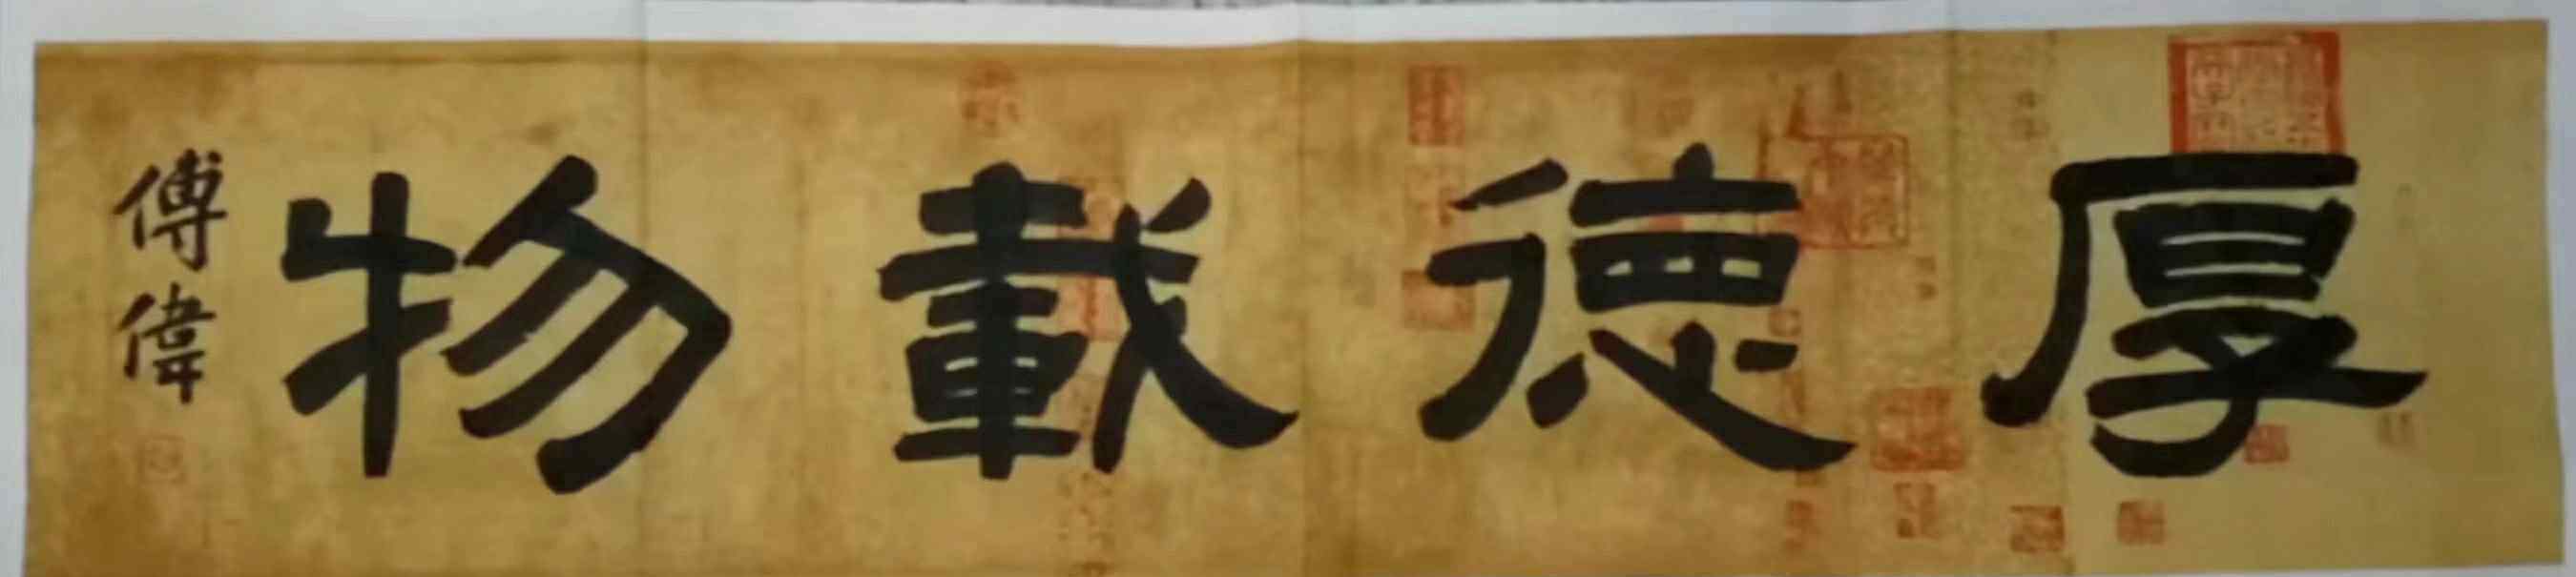 厚德載物
傅偉